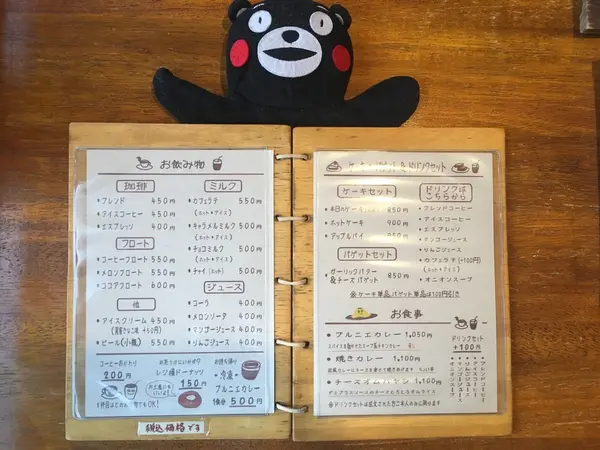 お飲み物
珈琲
ブレンド 450円
アイスコーヒー 450円
エスプレッソ 400円
フロート
コーヒーフロート 550円
メロンフロート 550円
ココアフロート 600円
他
アイスクリーム 450円
ビール(小瓶) 550円
ミルク
カフェラテ 550円
(ホット・アイス)
キャラメルミルク 500円
(ホット・アイス)
チョコミルク 500円
(ホット・アイス)
チャイ(ホット) 500円
ジュース
コーラ 400円
メロンソーダ 400円
マンゴージュース 400円
りんごジュース 400円
コーヒーおかわり
200円
レジ横ドーナッツ
150円
お持ち帰り
冷凍
アルニエカレー
1食分 500円
税込価格です
ドリンクセット
ケーキセット
本日のケーキ 850円
ホットケーキ 900円
アップルパイ
バゲットセット
ガーリックバター
&チーズバゲット 850円
ドリンクは
こちらから
ブレンドコーヒー
アイスコーヒー
エスプレッソ
マンゴージュース
りんごジュース
カフェラテ(+100円)
(ホット・アイス)
オニオンスープ
※ケーキ単品バゲット単品は100円引き
お食事
アルニエカレー 1,050円
焼きカレー 1,100円
1,100円
ドリンクセット
+100円